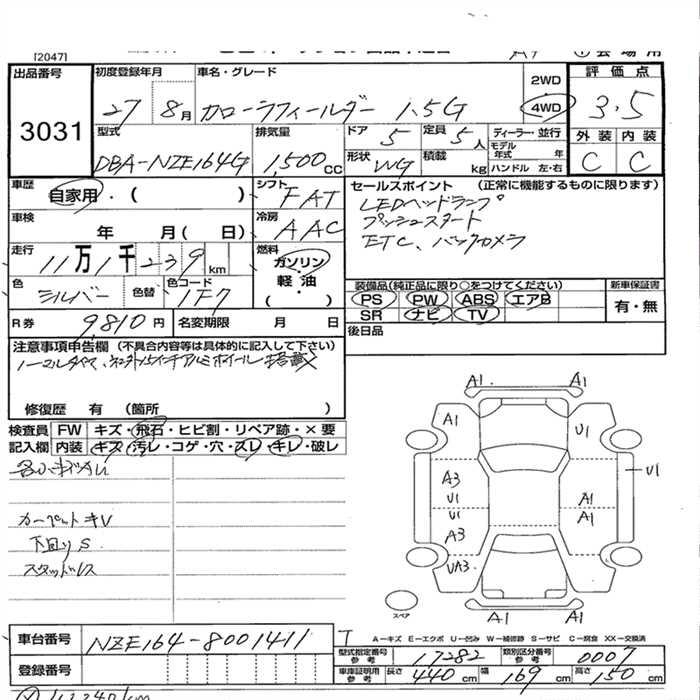 [2047]
出品番号 3031
初度登録年月 27 8月
車名・グレード カローラフィールダー 1.5G
2WD 4WD
評価点 3.5
外装 内装
C C
型式 DBA-NZE164G
排気量 1,500 CC
ドア 5 定員 5人
形状 WG 積載 kg
ディーラー・並行
モデル年式 年
ハンドル 左・右
車歴 自家用・( )
シフト FAT
車検 年 月( 日)
冷房 AAC
走行 11万1千239km
燃料 ガソリン・軽油・( )
色 シルバー 色替 色コード 1F7
R券 9,810円 名変期限 月 日
セールスポイント (正常に機能するものに限ります)
LEDヘッドランプ
プッシュスタート
ETC、バックカメラ
装備品(純正品に限り○をつけてください)
PS PW ABS エアB
SR ナビ TV
新車保証書
有・無
後日品
注意事項申告欄 (不具合内容等は具体的に記入して下さい)
修復歴 有 (箇所 )
検査員記入欄
FW キズ・飛石・ヒビ割・リペア跡・×要
内装 キズ・汚レ・コゲ・穴・スレ・キレ・破レ
カーペットキレ
下回りS
スタッドレス
A1 A1
A1 U1
A3 U1
U1 A3
A1
A1
U1
UA3
A1 A1
スペア
A-キズ E-エクボ U-凹み W-補修跡 S-サビ C-腐食 XX-交換済
車台番号 NZE164-8001411
登録番号
型式指定番号 参考 17282
類別区分番号 参考 0007
車庫証明用 参考 長さ 440 cm 幅 169 cm 高さ 150 cm